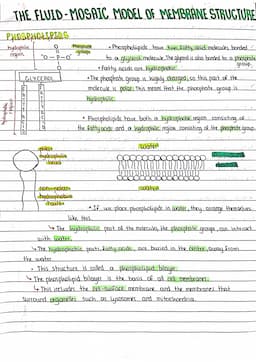 THE FLUID-MOSAIC MODEL OF MEMBRANE STRUCTURE
PHOSPHOLIPIDS
hydrophilic region
O
phosphate group
⁻O – P – O⁻
O
• Phospholipids have two fatty acid molecules bonded
to a glycerol molecule. The glycerol is also bonded to a phosphate
group.
• Fatty acids are hydrophobic
GLYCEROL
• The phosphate group is highly charged, so this part of the
molecule is polar. This means that the phosphate group is
hydrophilic
hydrophobic region
FATTY ACID
FATTY ACID
• Phospholipids have both a hydrophobic region consisting of
the fatty acids and a hydrophilic region consisting of the phosphate group.
polar hydrophilic head
water
non-polar hydrophobic tails
water
• If we place phospholipids in water, they arrange themselves
like this.
↳ The hydrophilic part of the molecule, the phosphate groups, can interact
with water.
↳ The hydrophobic parts, fatty acids, are buried in the centre, away from
the water
• This structure is called a phospholipid bilayer.
↳ The phospholipid bilayer is the basis of all cell membranes.
↳ This includes the cell-surface membrane and the membranes that
surround organelles such as lysosomes and mitochondria.